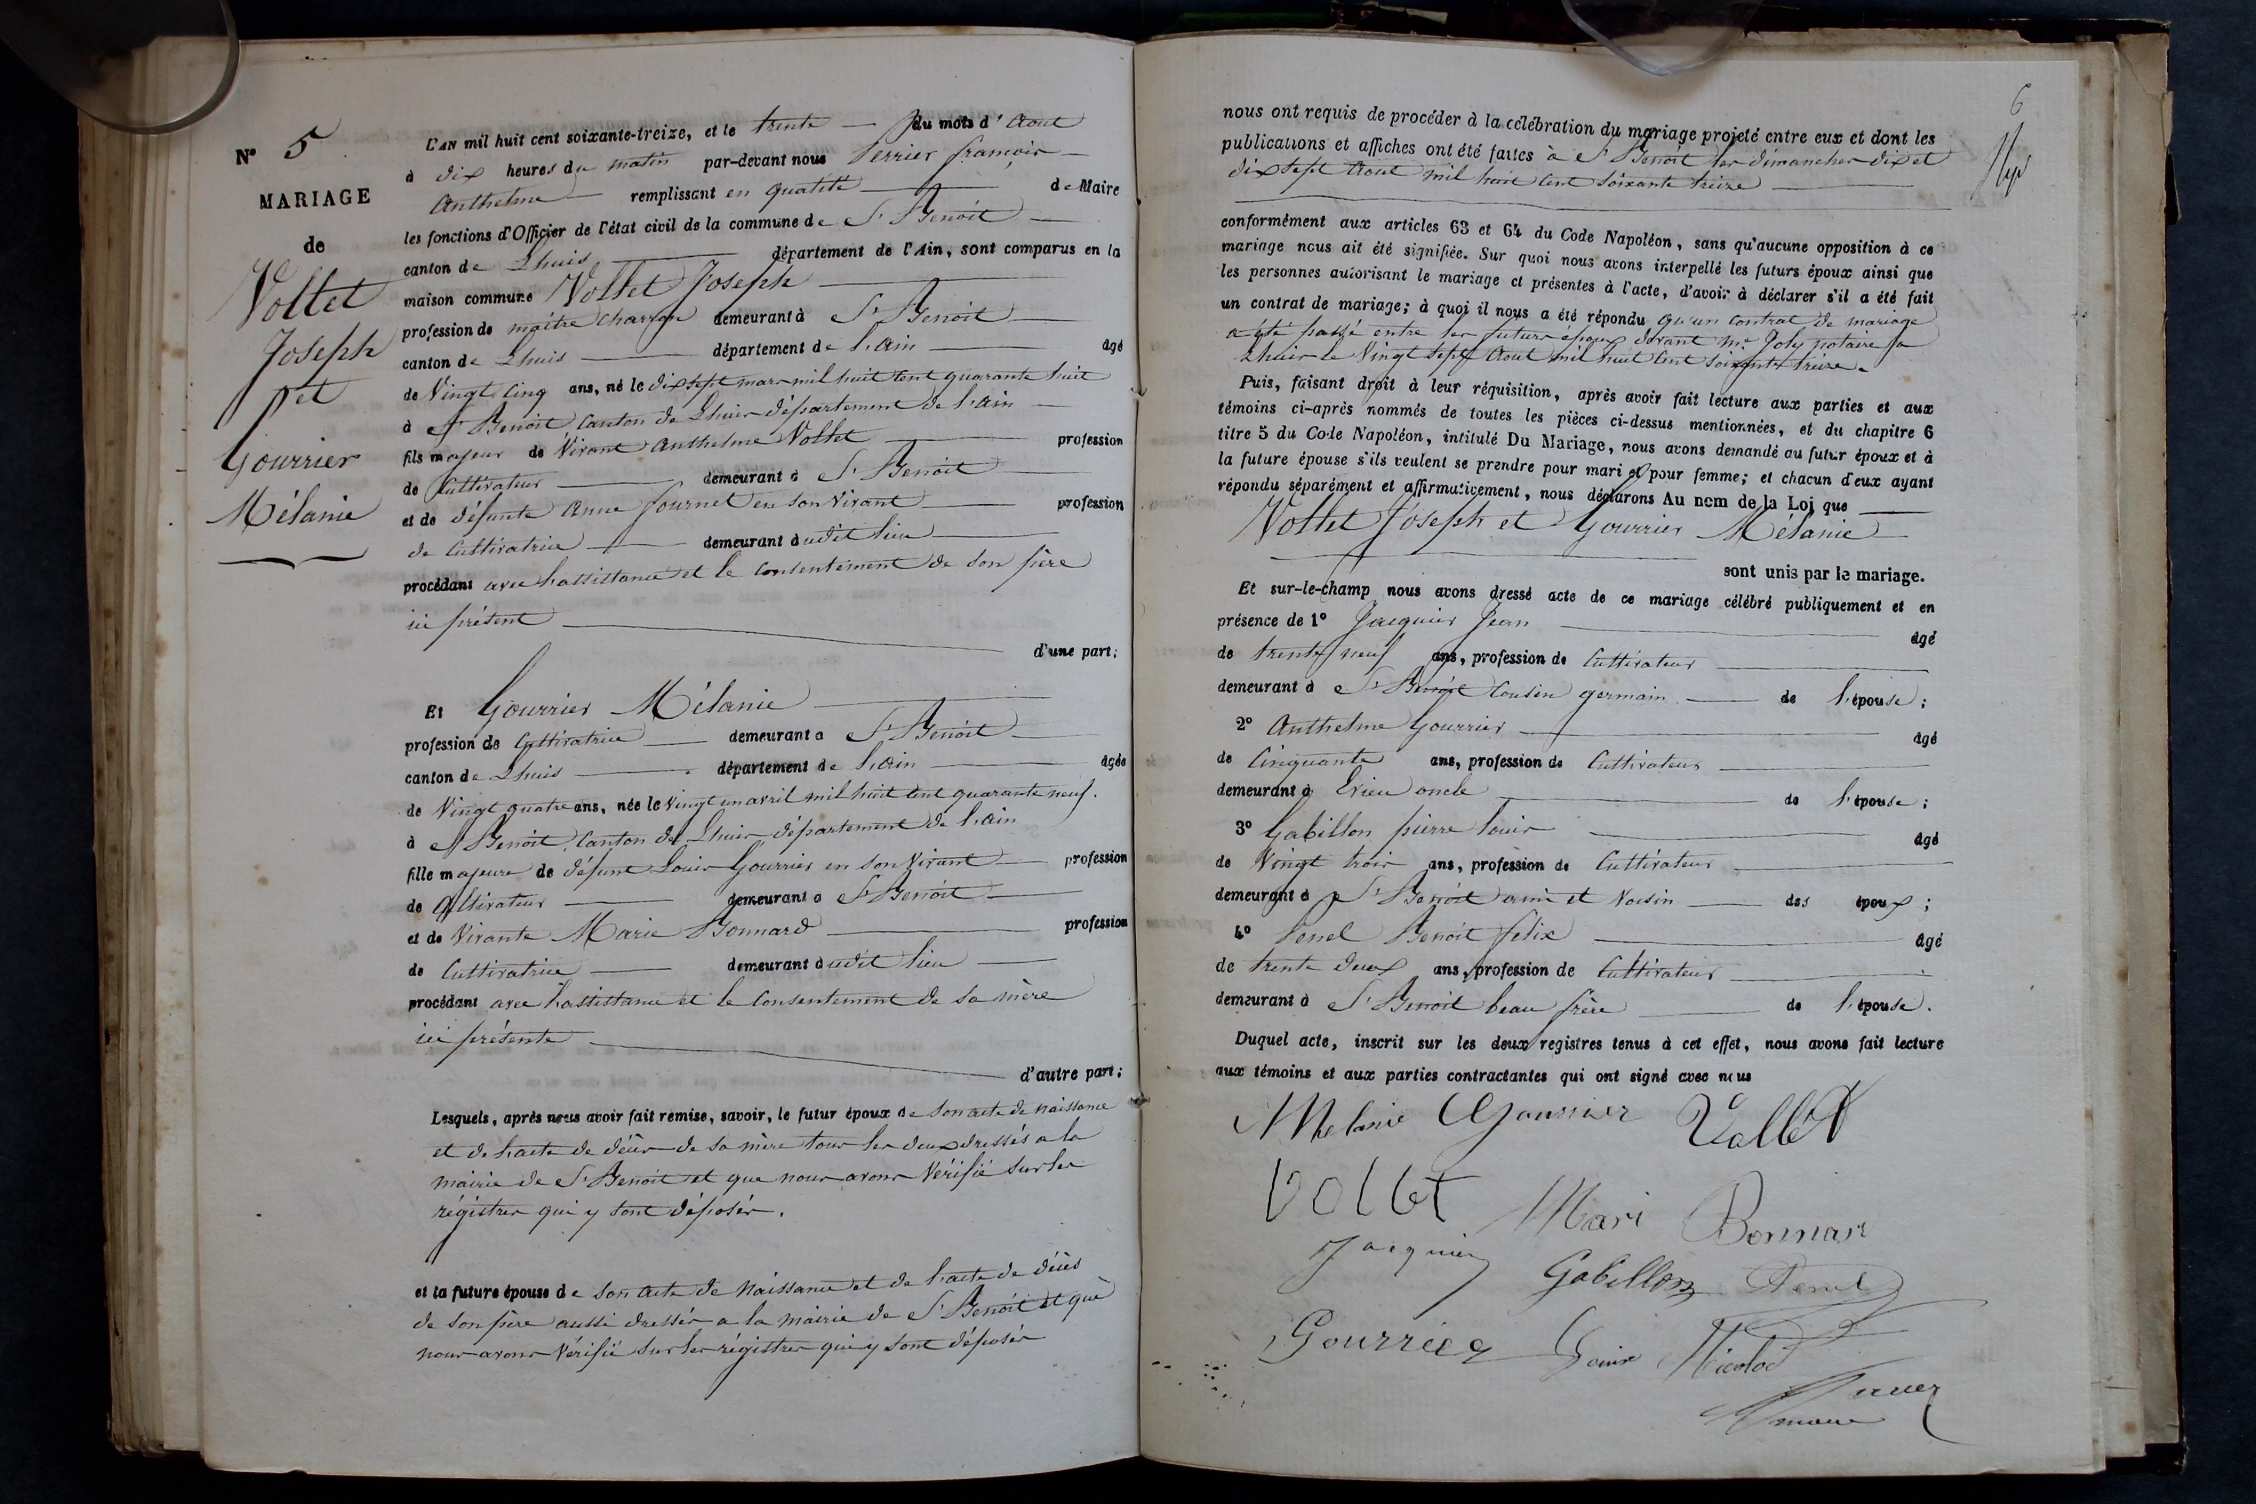 N° 5
MARIAGE
de
Vollet
Joseph
et
Gourrier
Mélanie
L'AN mil huit cent soixante-treize, et le trente du mois d'Aout
à dix heures du matin par-devant nous Perrier françois
Anthelme remplissant en qualité de Maire
les fonctions d'Officier de l'état civil de la commune de St Benoit
canton de Lhuis département de l'Ain, sont comparus en la
maison commune Vollet Joseph
profession de maitre charron demeurant à St Benoit
canton de Lhuis département de l'ain âgé
de Vingt Cinq ans, né le dix sept mars mil huit cent quarante huit
à St Benoit Canton de Lhuis département de l'ain
fils majeur de Vivant Anthelme Vollet profession
de Cultivateur demeurant à St Benoit
et de défunte Anne fournet en son Vivant profession
de Cultivatrice demeurant audit lieu
procédant avec l'assistance et le consentement de son père
ici présent
d'une part;
Et Gourrier Mélanie
profession de Cultivatrice demeurant à St Benoit
canton de Lhuis département de l'ain âgée
de Vingt quatre ans, née le Vingt un avril mil huit cent quarante neuf.
à St Benoit Canton de Lhuis département de l'ain
fille majeure de défunt Louis Gourrier en son Vivant profession
de Cultivateur demeurant à St Benoit
et de Vivante Marie Bonnard profession
de Cultivatrice demeurant audit lieu
procédant avec l'assistance et le Consentement de sa mère
ici présente
d'autre part;
Lesquels, après nous avoir fait remise, savoir, le futur époux de son acte de naissance
et de l'acte de décès de sa mère tous les deux dressés a la
mairie de St Benoit et que nous avons Vérifié sur les
régistres qui y sont déposés.
et la future épouse de son acte de naissance et de l'acte de décès
de son père aussi dressés a la mairie de St Benoit et que
nous avons Vérifié sur les régistres qui y sont déposés
6
nous ont requis de procéder à la célébration du mariage projeté entre eux et dont les
publications et affiches ont été faites à St Benoit les dimanches dix et
dix sept Aout mil huit cent soixante treize
conformément aux articles 63 et 64 du Code Napoléon, sans qu'aucune opposition à ce
mariage nous ait été signifiée. Sur quoi nous avons interpellé les futurs époux ainsi que
les personnes autorisant le mariage et présentes à l'acte, d'avoir à déclarer s'il a été fait
un contrat de mariage; à quoi il nous a été répondu qu'un contrat de mariage
a été passé entre les futurs époux devant Me Joly notaire a
Lhuis le Vingt sept Aout mil huit Cent soixante treize.
Puis, faisant droit à leur réquisition, après avoir fait lecture aux parties et aux
témoins ci-après nommés de toutes les pièces ci-dessus mentionnées, et du chapitre 6
titre 5 du Code Napoléon, intitulé Du Mariage, nous avons demandé au futur époux et à
la future épouse s'ils veulent se prendre pour mari et pour femme; et chacun d'eux ayant
répondu séparément et affirmativement, nous déclarons Au nom de la Loi que
Vollet Joseph et Gourrier Mélanie
sont unis par le mariage.
Et sur-le-champ nous avons dressé acte de ce mariage célébré publiquement et en
présence de 1° Jacquier Jean âgé
de trente neuf ans, profession de Cultivateur
demeurant à St Benoit Cousin germain de l'épouse;
2° Anthelme Gourrier âgé
de Cinquante ans, profession de Cultivateur
demeurant à Evieu oncle de l'épouse;
3° Gabillon pierre louis âgé
de Vingt trois ans, profession de Cultivateur
demeurant à St Benoit ami et Voisin des époux;
4° Penel Benoit félix âgé
de trente deux ans, profession de Cultivateur
demeurant à St Benoit beau frère de l'épouse.
Duquel acte, inscrit sur les deux registres tenus à cet effet, nous avons fait lecture
aux témoins et aux parties contractantes qui ont signé avec nous
Melanie Gourrier Vollet
Vollet Mari Bonnar
Jacquier Gabillon Penel
Gourrier Louis Nicolod
maire